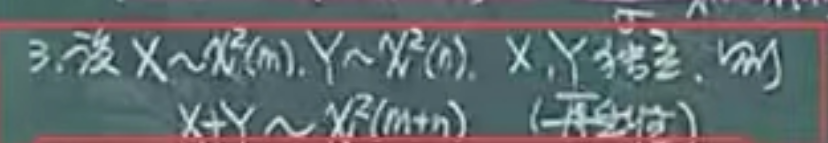 3.设 X~χ²(m). Y~χ²(n). X,Y独立、则
X+Y ~ χ²(m+n) (再生性)